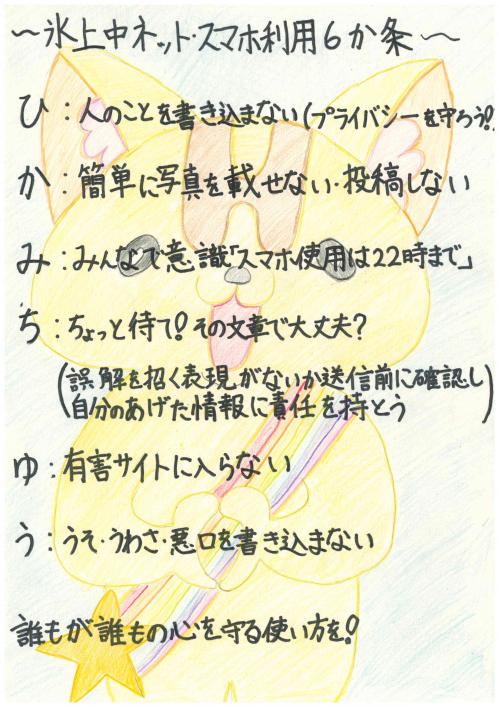 ～氷上中ネット・スマホ利用6か条～
ひ：人のことを書き込まない(プライバシーを守ろう!)
か：簡単に写真を載せない・投稿しない
み：みんなで意識「スマホ使用は22時まで」
ち：ちょっと待て!その文章で大丈夫?
(誤解を招く表現がないか送信前に確認し
自分のあげた情報に責任を持とう)
ゆ：有害サイトに入らない
う：うそ・うわさ・悪口を書き込まない
誰もが誰もの心を守る使い方を!